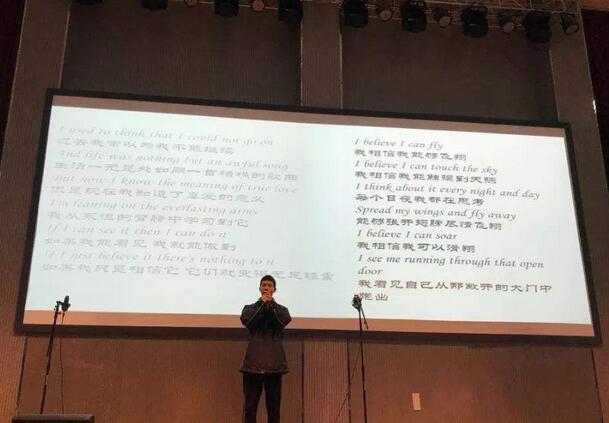 I used to think that I could not go on
过去我常以为我不能继续
And life was nothing but an awful song
生活一无是处如同一首糟糕的歌曲
But now I know the meaning of true love
但是现在我知道了真爱的意义
I'm leaning on the everlasting arms
我从永恒的臂膀中学习到它
If I can see it then I can do it
如果我能看见 我就能做到
If I just believe it there's nothing to it
如果我只是相信它 它们就变得无足轻重
I believe I can fly
我相信我能够飞翔
I believe I can touch the sky
我相信我能触摸到天际
I think about it every night and day
每个日夜我都在思考
Spread my wings and fly away
能够张开翅膀尽情飞翔
I believe I can soar
我相信我可以滑翔
I see me running through that open
door
我看见自己从那敞开的大门中
跑出